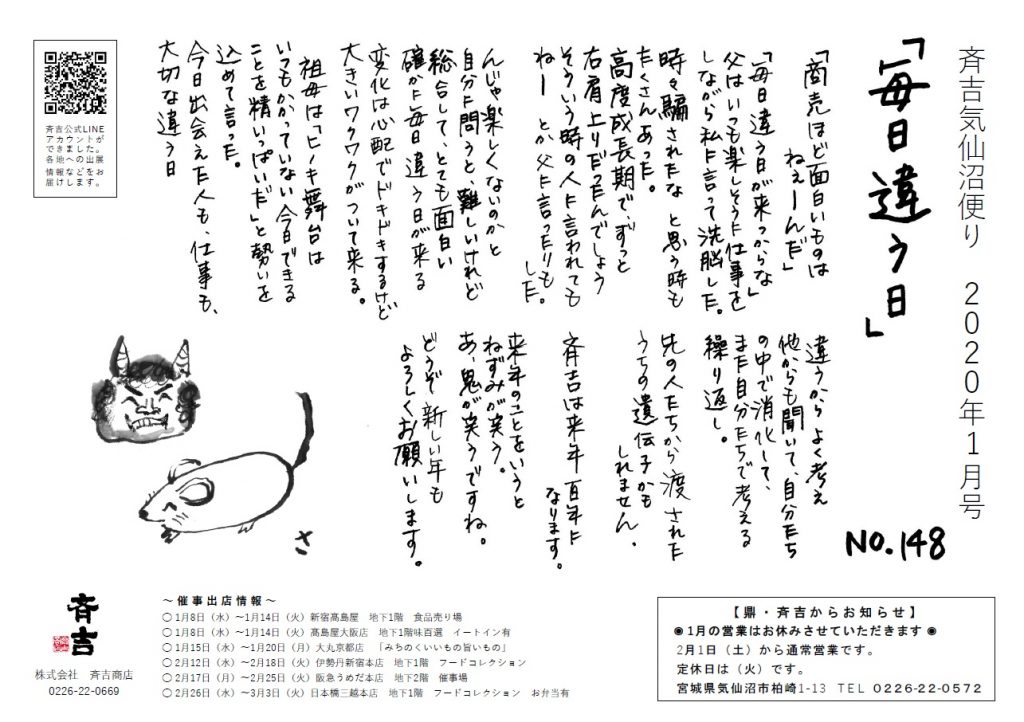 斉吉気仙沼便り 2020年1月号
「毎日違う日」
NO.148
「商売ほど面白いものは
ねぇーんだ」
「毎日違う日が来っからな」
父はいつも楽しそうに仕事を
しながら私に言って洗脳した。
時々騙されたなと思う時も
たくさんあった。
高度成長期で、ずっと
右肩上りだったんでしょう
そういう時の人に言われても
ねー とか父に言ったりも
した。
んじゃ楽しくないのかと
自分に問うと、難しいけれど
総合して、とても面白い
確かに毎日違う日が来る
変化は心配でドキドキするけど
大きいワクワクがついて来る。
祖母は「ヒノキ舞台は
いつもかかっていない今日できる
ことを精いっぱいだ」と勢いを
込めて言った。
今日出会えた人も、仕事も、
大切な違う日
違うからよく考え
他からも聞いて、自分たち
の中で消化して、
また自分たちで考える
繰り返し。
先の人たちから渡された
うちの遺伝子かも
しれません。
斉吉は来年百年に
なります。
来年のことをいうと
ねずみが笑う。
あ、鬼が笑うですね。
どうぞ新しい年も
よろしくお願いします。
さ
斉吉公式LINE
アカウントが
できました。
各地への出展
情報などをお
届けします。
斉吉
株式会社 斉吉商店
0226-22-0669
～催事出店情報～
○1月8日（水）～1月14日（火）新宿髙島屋 地下1階 食品売り場
○1月8日（水）～1月14日（火）髙島屋大阪店 地下1階味百選 イートイン有
○1月15日（水）～1月20日（月）大丸京都店 「みちのくいいもの旨いもの」
○2月12日（水）～2月18日（火）伊勢丹新宿本店 地下1階 フードコレクション
○2月17日（月）～2月25日（火）阪急うめだ本店 地下2階 催事場
○2月26日（水）～3月3日（火）日本橋三越本店 地下1階 フードコレクション お弁当有
【鼎・斉吉からお知らせ】
◉1月の営業はお休みさせていただきます◉
2月1日（土）から通常営業です。
定休日は（火）です。
宮城県気仙沼市柏崎1-13 TEL 0226-22-0572